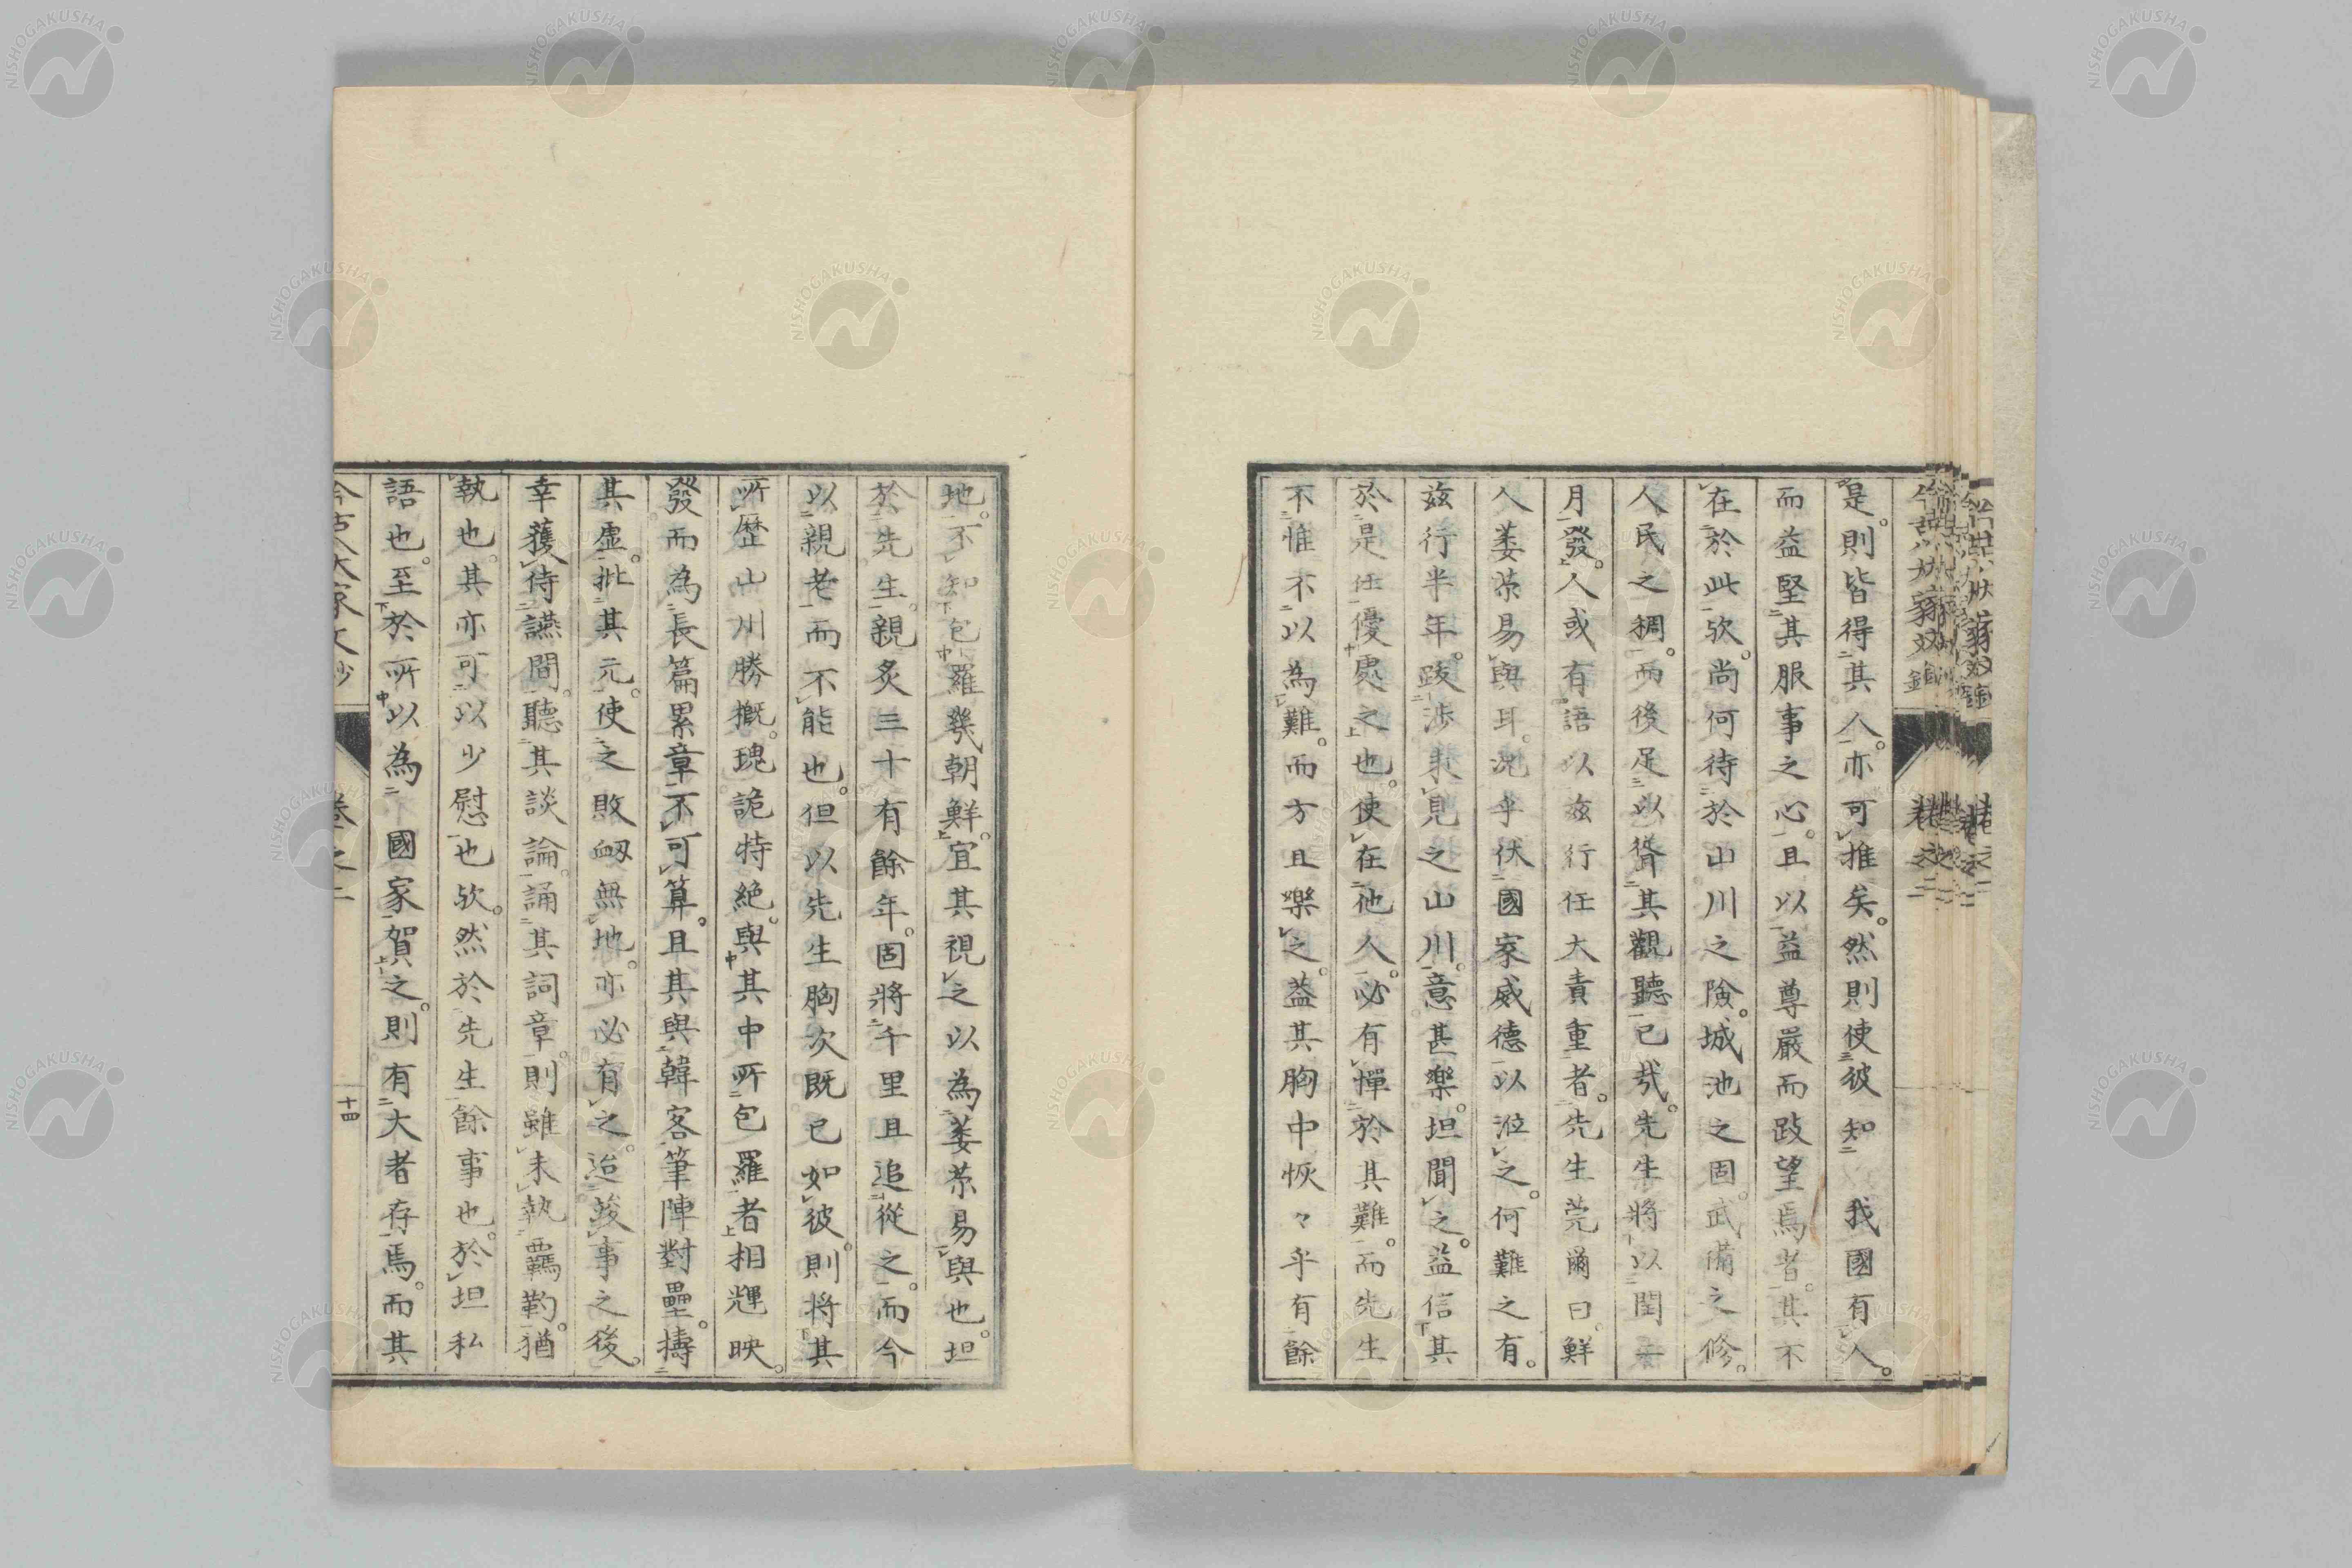 是。則皆得其人。亦可推矣。然則使彼知我國有人。
而益堅其服事之心。且以益尊嚴而跂望焉者。其不
在於此歟。尚何待於山川之險。城池之固。武備之修。
人民之稠。而後足以聳其觀聽已哉。先生將以閏
月發。人或有語以茲行任大責重者。先生莞爾曰。鮮
人蔞茶易與耳。況乎伏國家威德以涖之。何難之有。
茲行半年。跋涉来見之山川。意甚樂。坦聞之。益信其
於是任優處之也。使在他人。必有憚於其難。而先生
不惟不以為難。而方且樂之。益其胸中恢々乎有餘
地。不知包羅幾朝鮮。宜其視之以為蔞茶易與也。坦
於先生。親炙三十有餘年。固將千里且追從之。而今
以親老而不能也。但以先生胸次既已如彼。則將其
所歷山川勝概。瑰詭特絕。與其中所包羅者相輝映。
發而為長篇累章。不可算。且其與韓客筆陣對壘。擣
其虛。批其亢。使之敗衂無地。亦必有之。迨竣事之後。
幸獲侍讌間。聽其談論。誦其詞章。則雖未執羈靮。猶
執也。其亦可以少慰也歟。然於先生餘事也。於坦私
語也。至於所以為國家賀之。則有大者存焉。而其
今古八大家文鈔
卷之二
十四